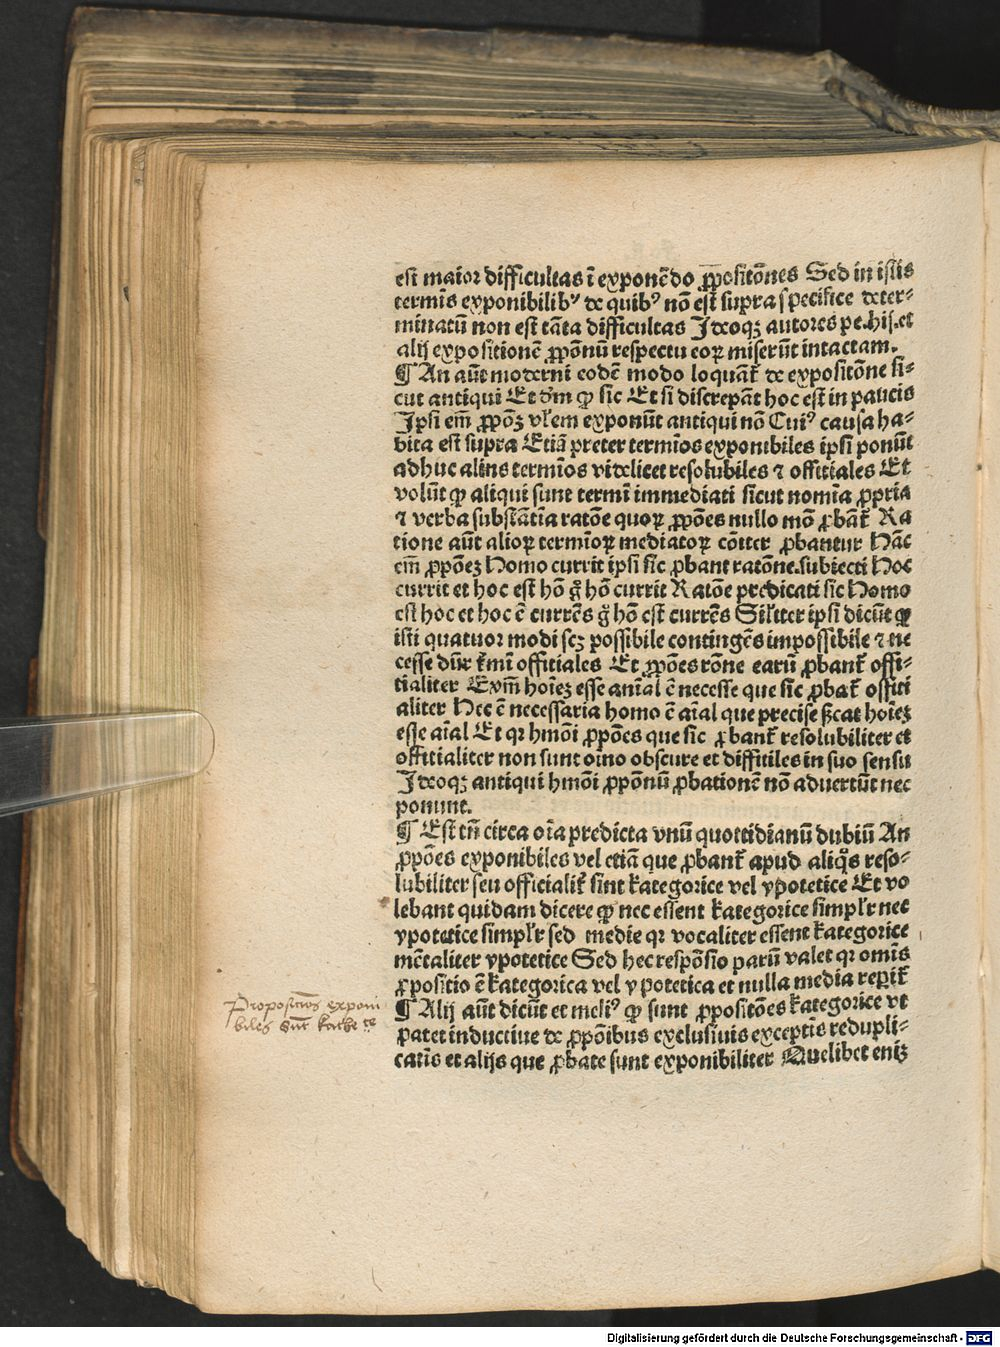 est maior difficultas ī exponēdo ꝓpositōnes Sed in istis
termīs exponibilibꝰ de quibꝰ nō est supra specifice deter-
minatū non est tāta difficultas Ideoqꝫ autores pe.his.et
alij expositionē ꝓpōnū respectu eoꝝ miserūt intactam.
¶ An aūt moderni eodē modo loquāt᷑ de expositōne si-
cut antiqui Et dm̄ ꝙ sic Et si discrepāt hoc est in paucis
Ipsi em̄ ꝓpōꝫ vl̄em exponūt antiqui nō Cuiꝰ causa ha-
bita est supra Etiā preter termīos exponibiles ipsi ponūt
adhuc alios termīos videlicet resolubiles ⁊ offitiales Et
volūt ꝙ aliqui sunt termī immediati sicut nomīa ꝓpria
⁊ verba substātīa ratōe quoꝝ ꝓpōes nullo mō ꝓbāt᷑ Ra
tione aūt alioꝝ termīoꝝ mediatoꝝ cōiter ꝓbantur Hāc
em̄ ꝓpōeꝫ Homo currit ipsi sic ꝓbant ratōne.subiecti Hoc
currit et hoc est hō g̊ hō currit Ratōe predicati sic Homo
est hoc et hoc ē currēs g̊ hō est currēs Sil̄iter ipsi dicūt ꝙ
isti quatuor modi scꝫ possibile contingēs impossibile ⁊ ne
cesse dūr t᷑mī offitiales Et ꝓpōes rōne earū ꝓbant᷑ offi-
tialiter Exm̄ hoīeꝫ esse anīal ē necesse que sic ꝓbat᷑ offiti
aliter Hec ē necessaria homo ē aīal que precise sḡcat hoīeꝫ
esse aīal Et qꝛ hmōi ꝓpōes que sic ꝓbant᷑ resolubiliter et
offitialiter non sunt oīno obscure et diffitiles in suo sensu
Ideoqꝫ antiqui hmōi ꝓpōnū ꝓbationē nō aduertūt nec
ponunt.
¶ Est tn̄ circa oīa predicta vnū quottidianū dubiū An
ꝓpōes exponibiles vel etiā que ꝓbant᷑ apud aliqͦs reso-
lubiliter seu officialit᷑ sint kategorice vel ypotetice Et vo
lebant quidam dicere ꝙ nec essent kategorice simpl̄r nec
ypotetice simpl̄r sed medie qꝛ vocaliter essent kategorice
mētaliter ypotetice Sed hec respōsio parū valet qꝛ omīs
ꝓpositio ē kategorica vel ypotetica et nulla media reperit᷑
¶ Alij aūt dicūt et meliꝰ ꝙ sunt ꝓpositōes kategorice vt
patet inductiue de ꝓpōnibus exclusiuis exceptīs redupli-
catīs et alijs que ꝓbate sunt exponibiliter Quelibet eniꝫ
Propositiōes exponi
biles sūt kathe
Digitalisierung gefördert durch die Deutsche Forschungsgemeinschaft - DFG